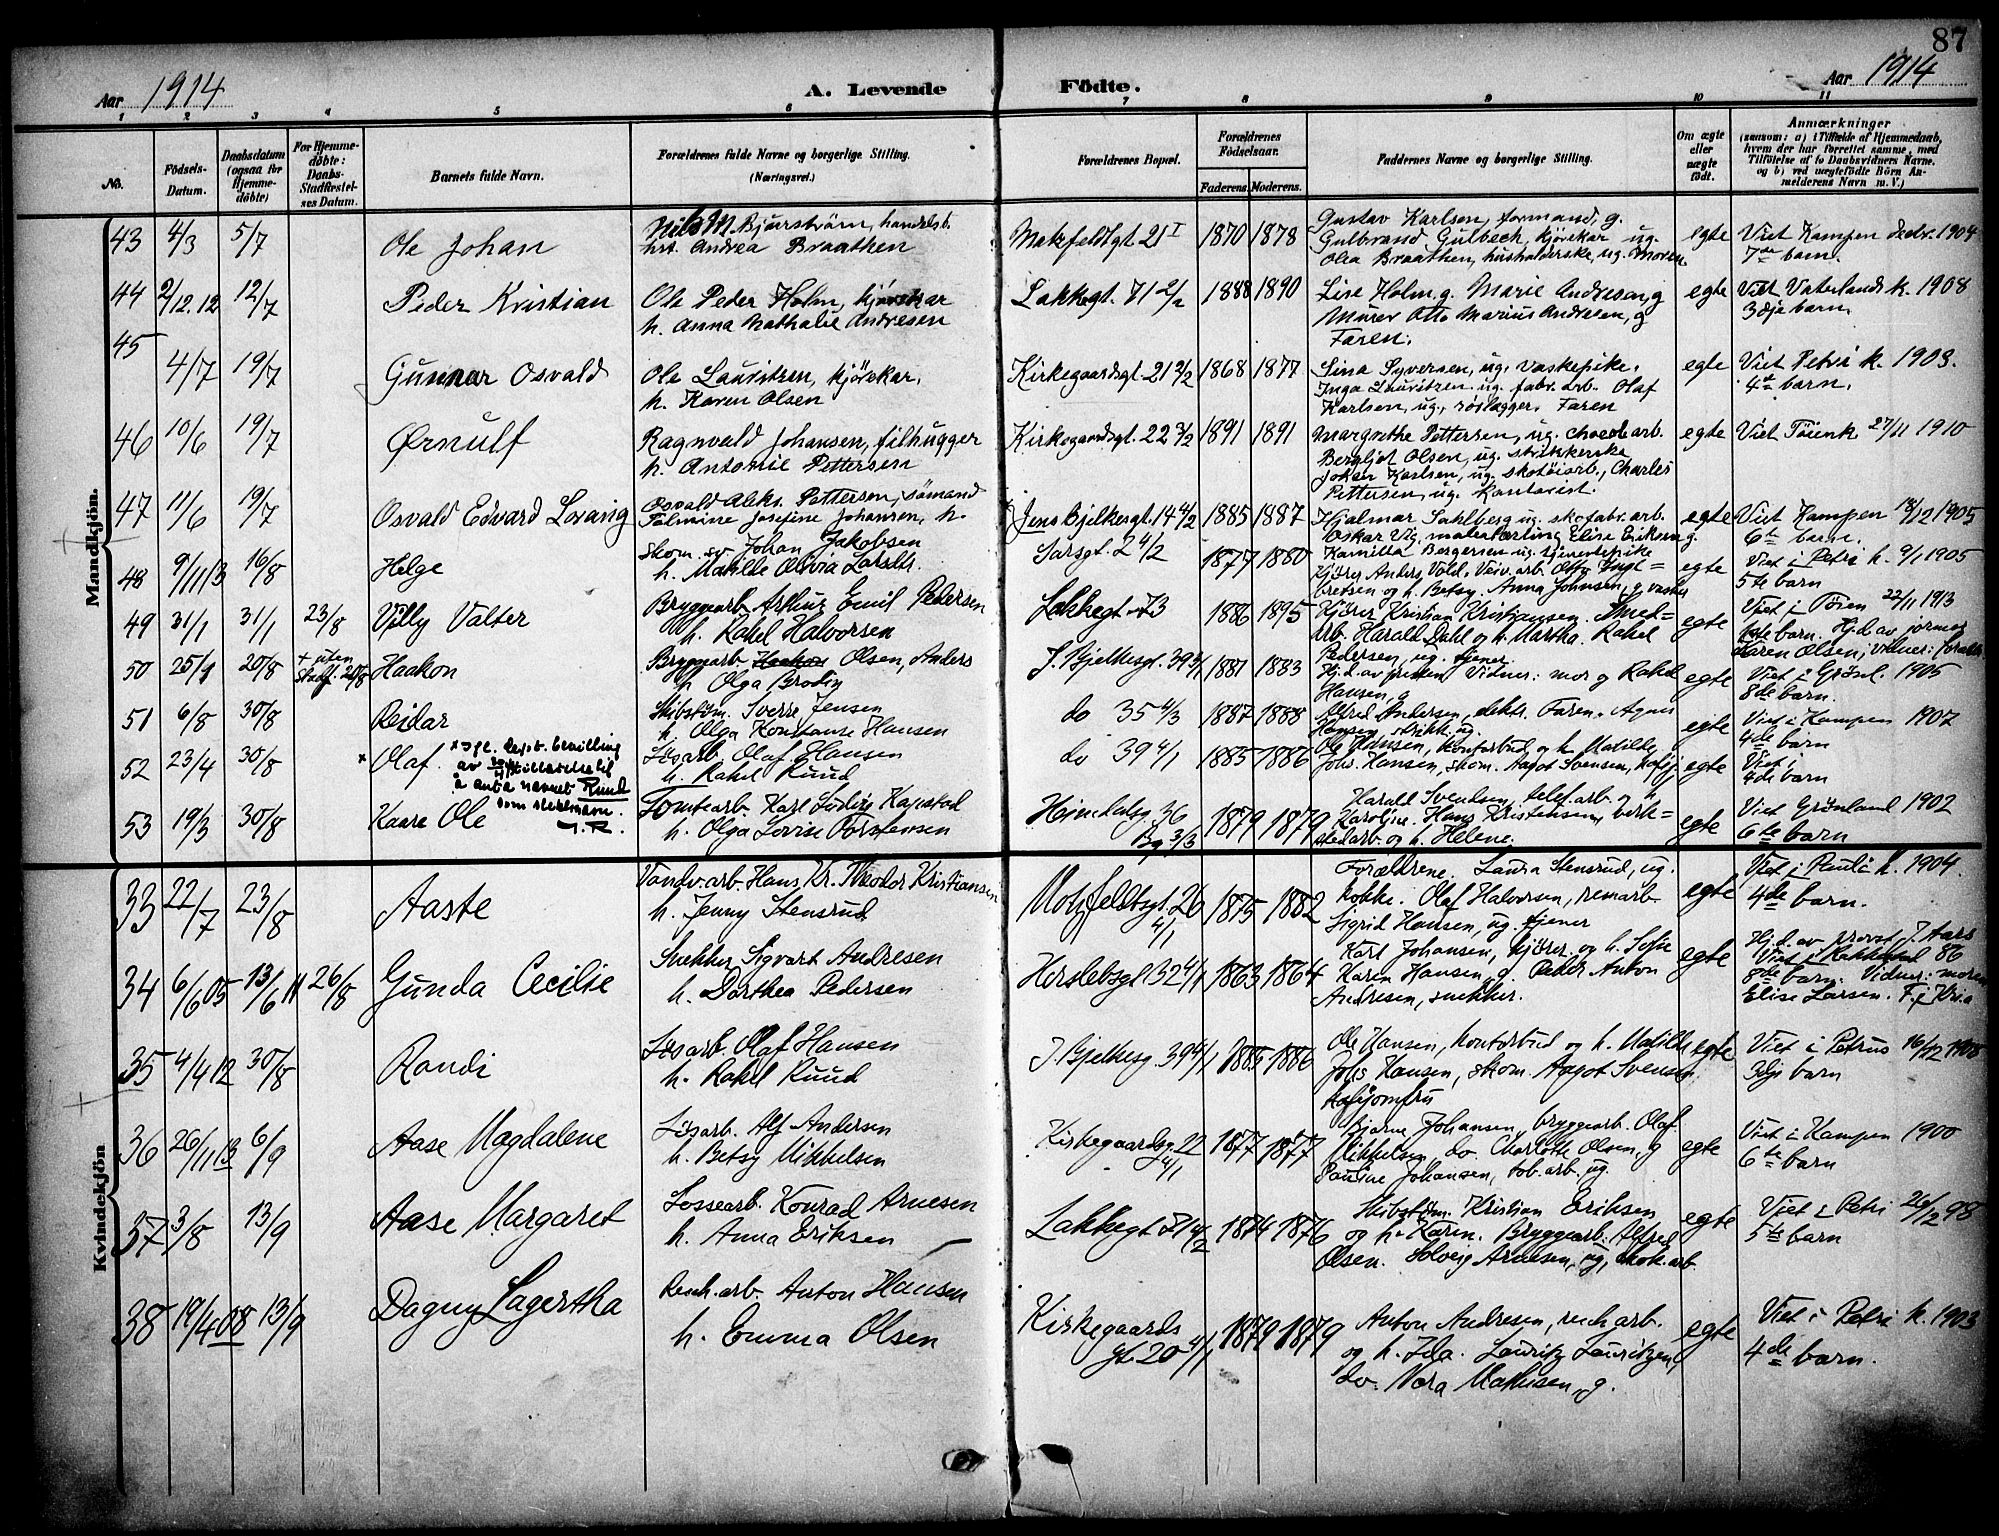 87
Aar 1914
A. Levende Födte.
Aar 1914
1 2 3 4 5 6 7 8 9 10 11
No.
Födsels-Datum.
Daabsdatum (ogsaa for Hjemmedöbte)
For Hjemmedöbte: Daabs-Stadfæstelses Datum.
Barnets fulde Navn.
Forældrenes fulde Navne og borgerlige Stilling.
(Næringsvei.)
Forældrenes Bopæl.
Forældrenes Födselsaar.
Faderens. Moderens.
Faddernes Navne og borgerlige Stilling.
Om ægte eller uægte födt.
Anmærkninger
(saasom: a) i Tilfælde af Hjemmedaab,
hvem der har forrettet samme, med
Tilföielse af to Daabsvidners Navne.
og b) ved uægtefödte Börn Anmelderens Navn m. V.)
Mandkjön.
43 4/3 5/7 Ole Johan
Nils M. Bjurström, handelsb.
hst. Andrea Braathen
Motzfeldtgt 21 I 1870 1878
Gustav Karlsen, formand, g.
Gulbrand Gulbeck, kjørekar ug.
Olea Braathen, husholderske, ug. Moren
egte Viet Kampen decbr. 1904
7de barn.
44 2/12.12 12/7 Peder Kristian
Ole Peder Holm, kjørekar
h. Anna Nathalie Andresen
Lakkegt. 71 2/2 1888 1890
Lise Holm, g. Marie Andresen, g
Murer Otto Marius Andresen, g
Faren.
egte Viet Vaterlands k. 1908
3dje barn.
45 4/7 19/7 Gunnar Osvald
Ole Lauritzen, kjørekar.
h. Karen Olsen
Kirkegaardsgt. 21 2/2 1868 1877
Lina Syversen, ug. vaskepike.
Inga Lauritzen, ug. fabr. arb. Olaf
Karlsen, ug., rørlægger. Faren
egte Viet Petri k. 1903.
4de barn.
46 10/6 19/7 Ørnulf
Ragnvald Johansen, filhugger
h. Antonie Pettersen
Kirkegaardsgt. 22 3/2 1891 1891
Margrethe Pettersen, ug. chocol. arb.
Bergljot Olsen, ug. strikkerske
Johan Karlsen, ug. skotøiarb., Charles
Pettersen, ug. kontorist.
egte Viet Tøienk 27/11 1910
47 11/6 19/7 Osvald Edvard Lorang
Osvald Aleks. Pettersen, sømand
Palmine Josefine Johansen, h.
Jens Bjelkesgt. 14 4/2 1885 1887
Hjalmar Sahlberg ug. skofabr. arb.
Oskar Vig, malerlærling Elise Eriksen g.
egte Viet Kampen 18/12 1905
6te barn.
48 9/11 13 16/8 Helge
Skom. sv. Johan Jakobsen
h. Matilde Olivia Larsdtr.
Sarsgt. 2 4/2 1877 1880
Kamilla Bergersen ug. tjenestepike
Kjører Anders Vold. Veiv. arb. Otto
og h. Betsy. Anna Johnsen, g. vasker
egte Viet i Petri k. 9/1 1905
5te barn
49 31/1 31/1 23/8 Villy Valter
Bryggearb. Arthur Emil Pedersen
h. Rakel Halvorsen
Lakkegt 73 1886 1895
Kjører Kristian Kristiansen. Smed=
arb. Harald Dahl og h. Martha. Rakel
Pedersen, ug. tjener.
egte Viet i Tøien 22/11 1913
1ste barn. Hj.d. av jormor
Karen Olsen, vidner: foræld
50 25/9 20/8 + uten stadf. 20/8 Haakon
Bryggearb. Olsen, Anders
h. Olga Brodin
J. Bjelkesgt. 39 3/1 1881 1883
Hj.d. av presten Vidner: mor og Rakel
Hansen, g
egte Viet i Grønl. 1905
8de barn.
51 6/8 30/8 Reidar
Skibstøm. Sverre Jensen
h. Olga Konstanse Hansen
do 35 4/3 1887 1888
Alfred Andersen, elektr. Faren. Agnes
Hansen, strikk. ug.
egte Viet i Kampen 1907
4de barn
52 23/4 30/8 × Olaf.
× igl. Dept. bevilling
av tilladelse til
å anta navnet Ruud
som slektsnavn.
J.R.
Løsarb. Olaf Hansen
h. Rakel Ruud
do 39 4/1 1885 1886
Ole Hansen, kontorbud og h. Matilde
Johs. Hansen, skom. Aagot Svensen, hafgj.
egte Viet i
4de barn
53 19/3 30/8 Kaare Ole
Tomtearb. Karl Ludvig Kapstad
h. Olga Lovise Torstensen
Heimdalsg 36
Bg 3/3 1879 1879
Harald Svendsen, telef. arb. og h.
Karoline. Hans Kristensen, verk=
stedarb. og h. Helene.
egte Viet Grønland 1902
6te barn
Kvindekjön
33 22/7 23/8 Aaste
Vandv. arb. Hans Kr. Theodor Kristiansen
h. Jenny Stensrud
Motzfeldtsgt 26
4/1 1875 1882
Forældrene. Laura Stensrud, ug.
kokke. Olaf Halvorsen, renarb.
Sigrid Hansen, ug. tjener
egte Viet i Pauli k. 1904.
4de barn.
34 6/6 05 13/6 11 26/8 Gunda Cecilie
Snekker Sigvart Andresen
h. Dorthea Pedersen
Herslebsgt 32 4/1 1863 1864
Karl Johansen, kjører, og h. Sofie
Karen Hansen, g Peder Anton
Andresen, snekker.
egte Hj.d. av provst J. Aars
Viet i Rakkestad 86
8de barn. Vidner: moren
Elise Larsen. F. i Kria
35 4/4 12 30/8 Randi
Løsarb. Olaf Hansen
h. Rakel Ruud
J. Bjelkesg. 39 4/1 1885 1886
Ole Hansen, kontorbud og h. Matilde
Johs Hansen, skom. Aagot Svensen
hafgjomfru
egte Viet i Petrus 16/12 1908
3dje barn
36 26/11 13 6/9 Aase Magdalene
Løsarb. Alf Andersen
h. Betsy Mikkelsen
Kirkegaardsg. 22
4/1 1877 1877
Bjarne Johansen, bryggearb. Olaf
Mikkelsen, do. Charlotte Olsen, g
Pauline Johansen, tob. arb. ug.
egte Viet i Kampen 1900
6te barn
37 3/8 13/9 Aase Margaret
Lossearb. Konrad Arnesen
h. Anna Eriksen
Lakkegt 71 4/2 1874 1876
Skibstøm. Kristian Eriksen
og h. Karen. Bryggearb. Alfred
Olsen. Solveig Arnesen, ug, chok. arb.
egte Viet i Petri 26/12 98
5te barn
38 19/4 08 13/9 Dagny Lagertha
Renh. arb. Anton Hansen
h. Emma Olsen
Kirkegaards
gt. 20 4/1 1879 1879
Anton Andresen, renh. arb.
og h. Ida. Lauritz Lauritzen,
do. Nora Mathisen, g.
egte Viet i Petri k. 1903
4de barn.